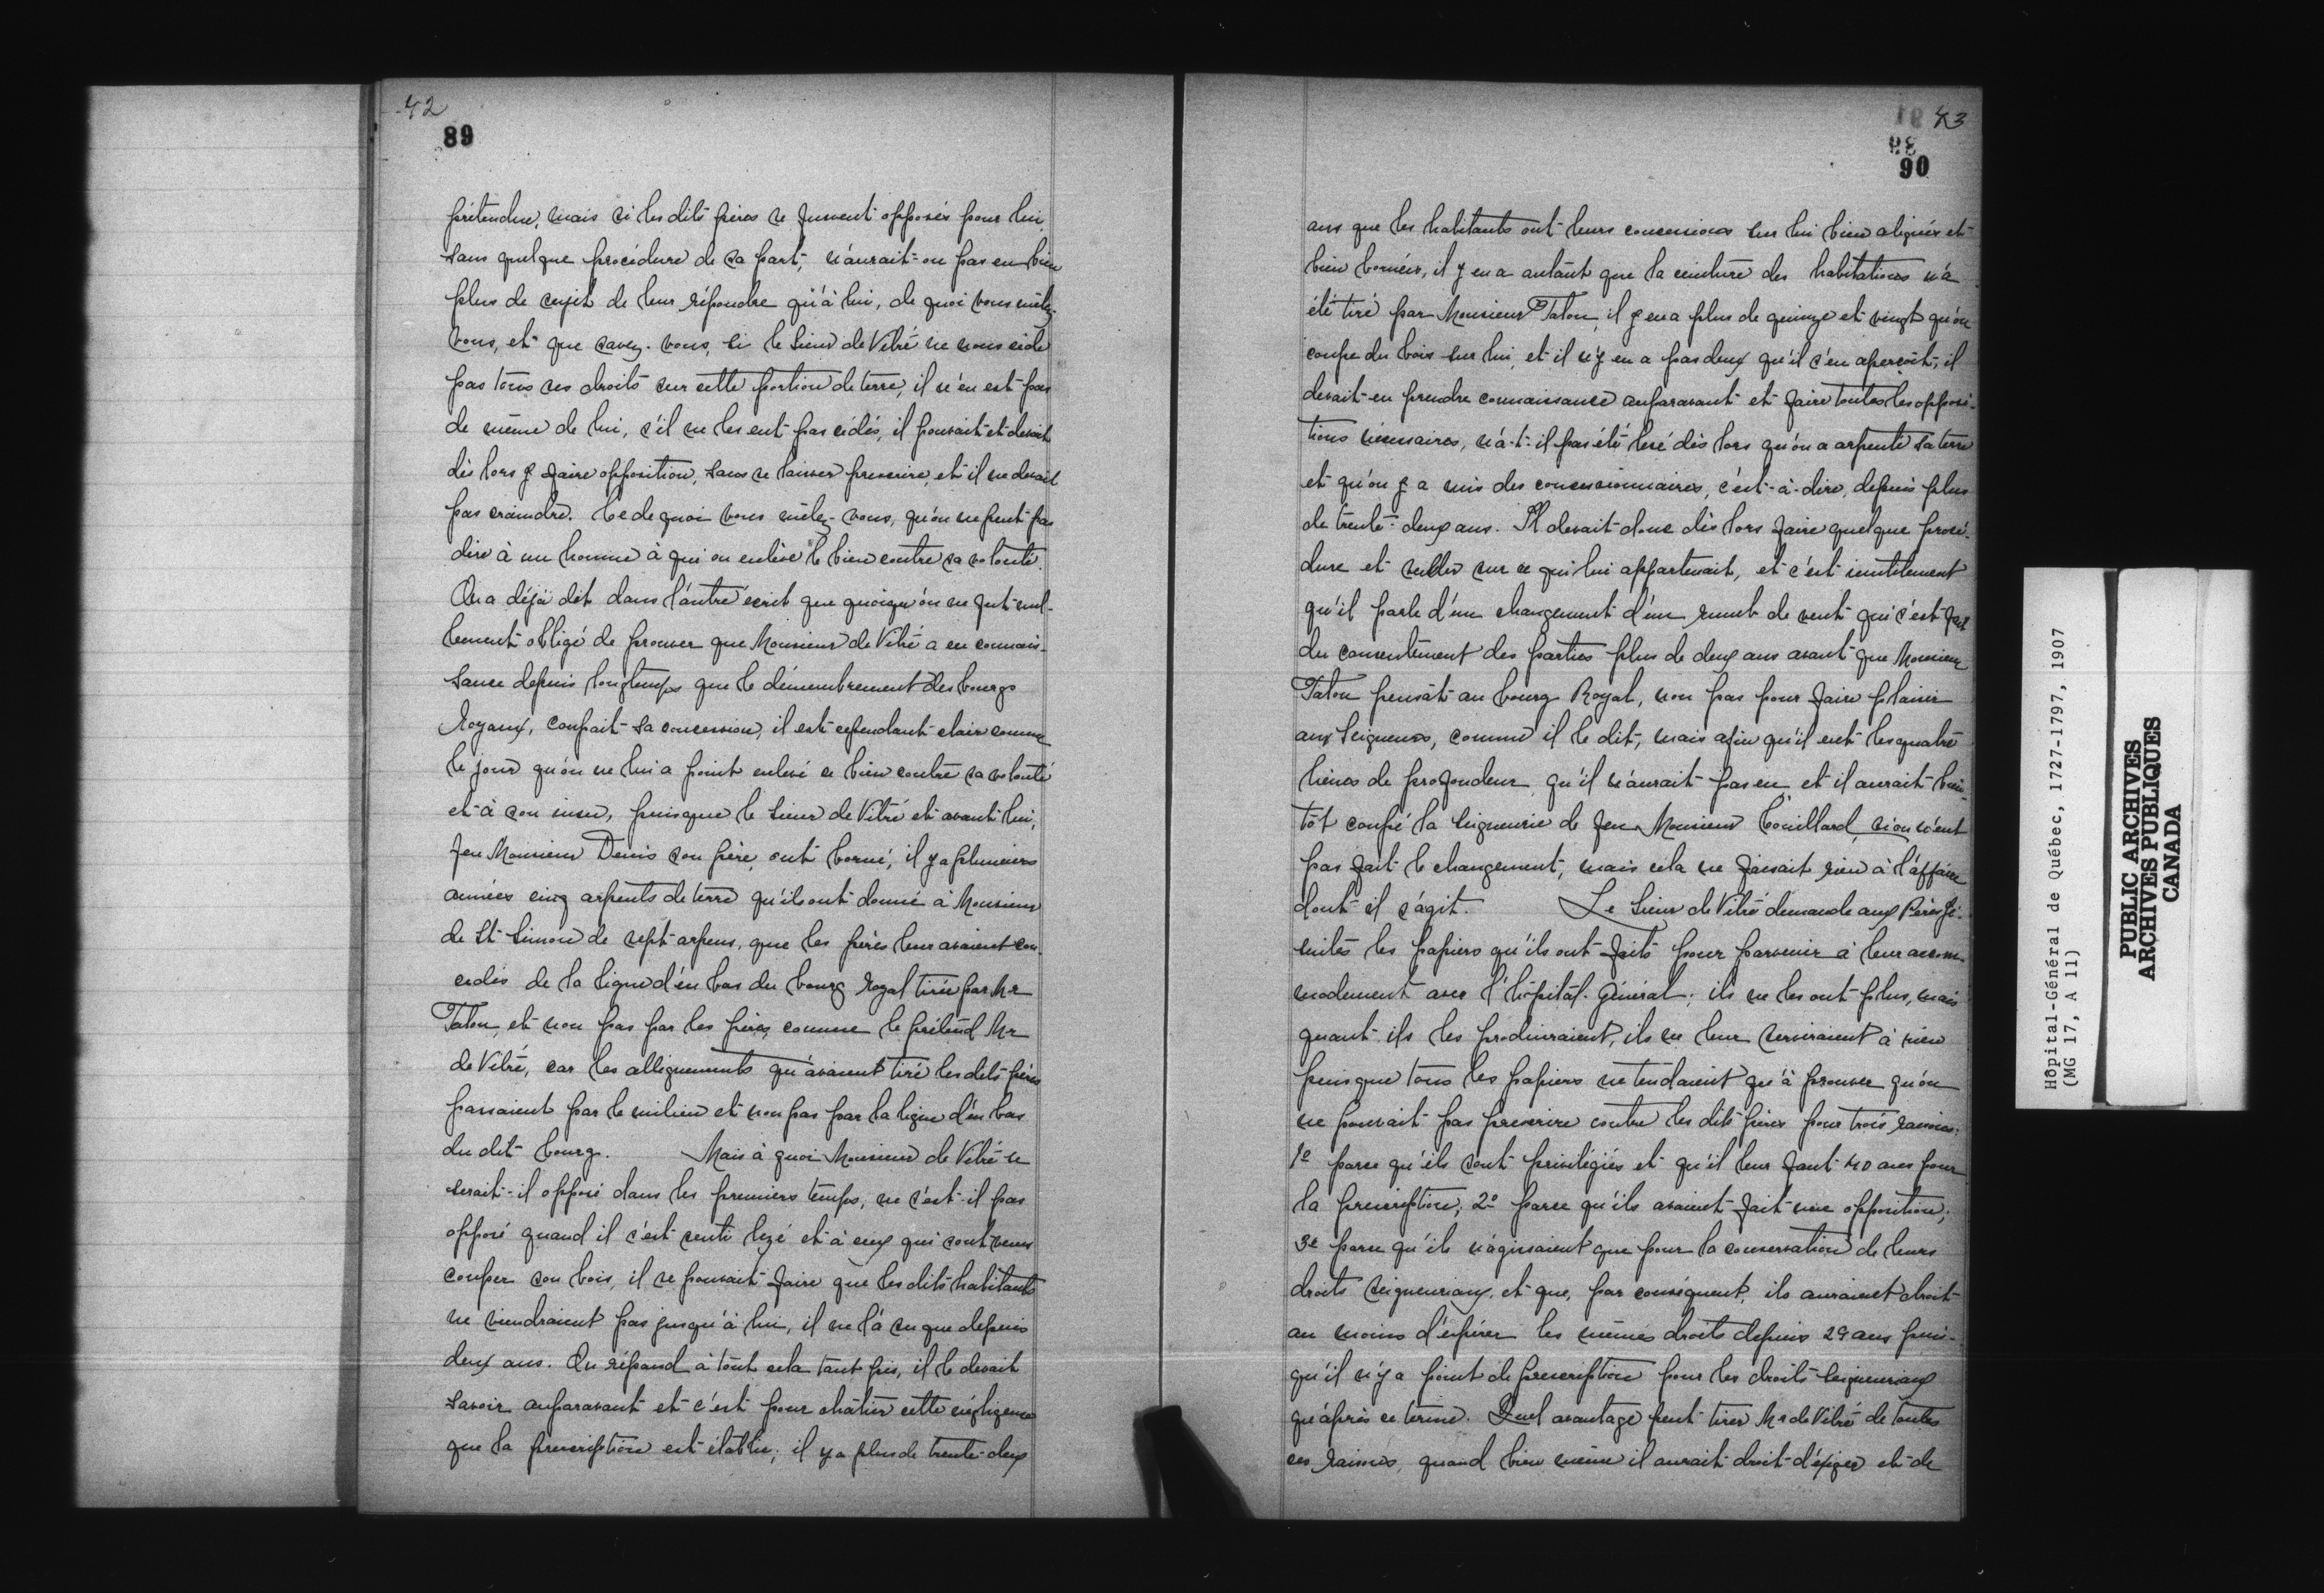 42
89
prétendre, mais si les dits pères se fussent opposés pour lui,
sans quelque procédure de sa part, n'aurait-on pas eu bien
plus de sujet de leur répondre qu'à lui, de quoi vous mêlez-
vous, et que savez-vous, si le Sieur de Vitré ne nous cède
pas tous ses droits sur cette portion de terre, il n'en est pas
de même de lui, s'il ne les eut pas cédés, il pouvait et devait
dès lors y faire opposition, sans se laisser prescrire, et il ne devait
pas craindre. Ce de quoi vous mêlez-vous, qu'on ne peut pas
dire à un homme à qui on enlève le bien contre sa volonté.
On a déjà dit dans l'autre écrit que quoiqu'on ne fut nul-
lement obligé de prouver que Monsieur de Vitré a eu connais-
sance depuis longtemps que le démembrement des bourgs
Royaux, coupait sa concession, il est cependant clair comme
le jour qu'on ne lui a point enlevé ce bien contre sa volonté
et à son insu, puisque le Sieur de Vitré et avant lui,
feu Monsieur Denis son père, ont borné, il y a plusieurs
années cinq arpents de terre qu'ils ont donné à Monsieur
de St Simon de sept arpens, que les pères leur avaient con-
cédés de la ligne d'en bas du bourg royal tirée par Mr
Talon, et non pas par les pères, comme le prétend Mr
de Vitré, car les allignements qu'avaient tiré les dits pères
passaient par le milieu et non pas par la ligne d'en bas
du dit bourg. Mais à quoi Monsieur de Vitré se
serait-il opposé dans les premiers temps, ne s'est-il pas
opposé quand il s'est senti lezé et à ceux qui sont venus
couper son bois, il se pouvait faire que les dits habitants
ne viendraient pas jusqu'à lui, il ne l'a su que depuis
deux ans. On répond à tout cela tant pis, il le devait
savoir auparavant et c'est pour châtier cette négligence
que la prescription est établie; il y a plus de trente-deux
43
90
ans que les habitants ont leurs concessions sur lui bien alignées et
bien bornées, il y en a autant que la ceinture des habitations n'a
été tiré par Monsieur Talon, il y en a plus de quinze et vingt qu'on
coupe du bois sur lui, et il n'y en a pas deux qu'il s'en aperçoit, il
devait en prendre connaissance auparavant et faire toutes les opposi-
tions nécessaires, n'a-t-il pas été lezé dès lors qu'on a arpenté sa terre
et qu'on y a mis des concessionnaires, c'est-à-dire, depuis plus
de trente-deux ans. Il devait donc dès lors faire quelque procé-
dure et veiller sur ce qui lui appartenait, et c'est inutilement
qu'il parle d'un changement d'un rumb de vent qui s'est fait
du consentement des parties plus de deux ans avant que Monsieur
Talon pensât au bourg Royal, non pas pour faire plaisir
aux Seigneurs, comme il le dit, mais afin qu'il eut les quatre
lieues de profondeur qu'il n'aurait pas eu, et il aurait bien-
tôt coupé la Seigneurie de feu Monsieur Couillard, si on n'eut
pas fait le changement, mais cela ne faisait rien à l'affaire
dont il s'agit. Le Sieur de Vitré demande aux Pères Jé-
suites les papiers qu'ils ont faits pour parvenir à leur accom-
modement avec l'hôpital-Général; ils ne les ont plus, mais
quant ils les produiraient, ils ne leur serviraient à rien
puisque tous les papiers ne tendaient qu'à prouver qu'on
ne pouvait pas prescrire contre les dits pères pour trois raisons:
1º parce qu'ils sont privilégiés et qu'il leur faut 40 ans pour
la prescription; 2º parce qu'ils avaient fait une opposition;
3e parce qu'ils n'agissaient que pour la conservation de leurs
droits seigneuriaux, et que, par conséquent, ils auraient droit
au moins d'espérer les mêmes droits depuis 29 ans puis-
qu'il n'y a point de prescription pour les droits Seigneuriaux
qu'après ce terme. Quel avantage peut tirer Mr de Vitré de toutes
ces raisons, quand bien même il aurait droit d'exiger et de
Hôpital-Général de Québec, 1727-1797, 1907
(MG 17, A 11)
PUBLIC ARCHIVES
ARCHIVES PUBLIQUES
CANADA